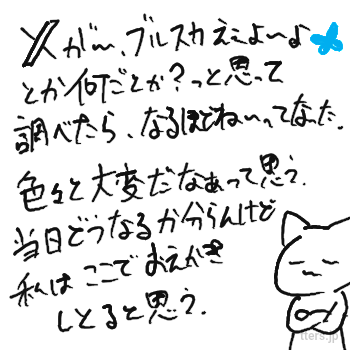 Xがー、ブルスカえこよ〜よ
とか何だとか?っと思って
調べたら、なるほどねいってなった.
色々と大変だなぁって思う.
当日どうなるか分らんけど
私は ここで おえかき
しとると思う.
tters.jp